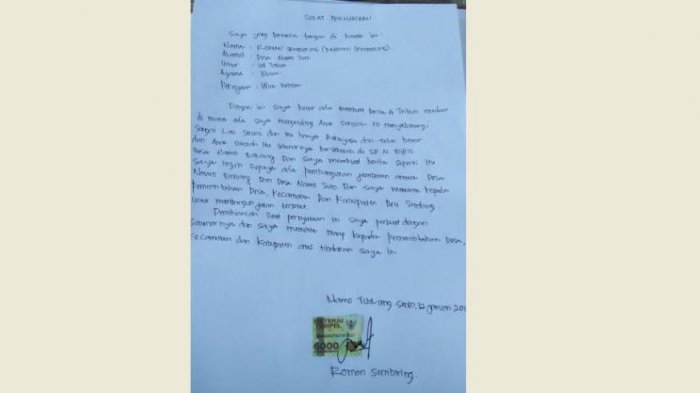 SURAT PERNYATAAN
Saya yang bertanda tangan di bawah ini :
Nama : ROMAN SEMBIRING
Alamat : Desa Namo Suro
Umur :
Agama :
Pekerjaan : Wira swasta
Dengan ini saya benar ada membuat berita di Tribun medan
di mana ada saya menggendong Anak sekolah SD menyeberangi
Sungai Lau Seruai dan itu hanya Rekayasa dan tidak benar
dan Anak sekolah itu sebenarnya bersekolah di SD N
Desa Namo Tualang Dan saya membuat berita seperti itu
Saya ingin supaya ada pembangunan jembatan antara Desa
Namo Tualang Dan Desa Namo Suro Dan saya meminta kepada
pemerintahan Desa, Kecamatan Dan Kabupaten Deli Serdang
untuk membangun jalan tersebut.
Demikianlah surat pernyataan ini saya perbuat dengan
sebenarnya dan saya meminta maaf kepada pemerintahan Desa,
Kecamatan dan Kabupaten atas tindakan saya ini
Namo Tualang 12 Januari
METERAI
TEMPEL
6000
Roman Sembiring.